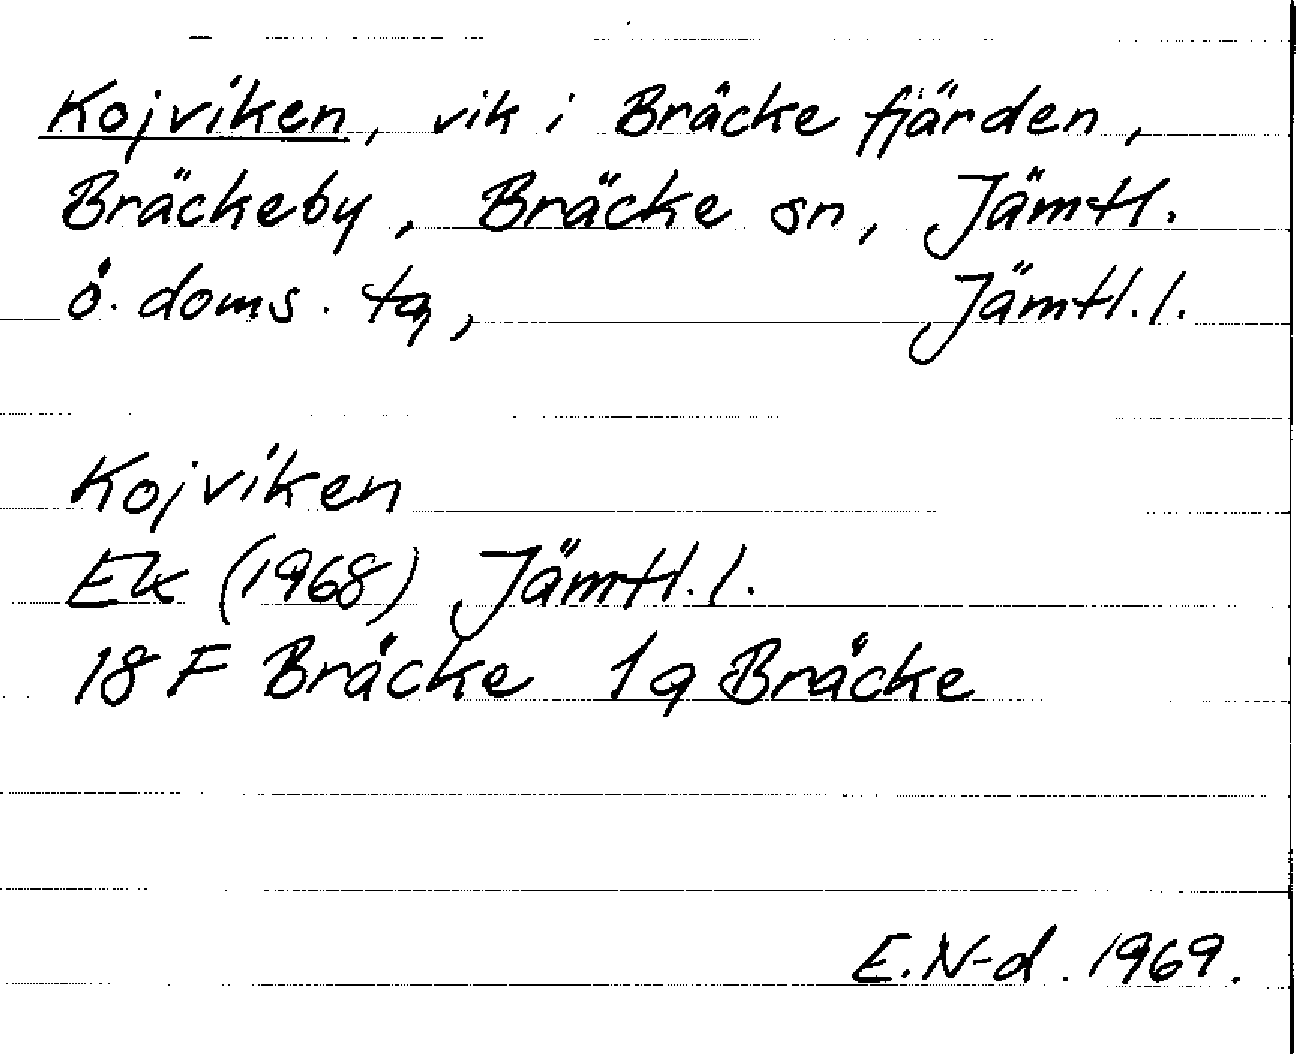 Kojviken, vik i Bräcke fjärden,
Bräckeby, Bräcke sn, Jämtl.
ö. doms. tg, Jämtl. l.
Kojviken
Ek (1968) Jämtl. l.
18 F Bräcke 1 g Bräcke
E. N-d. 1969.